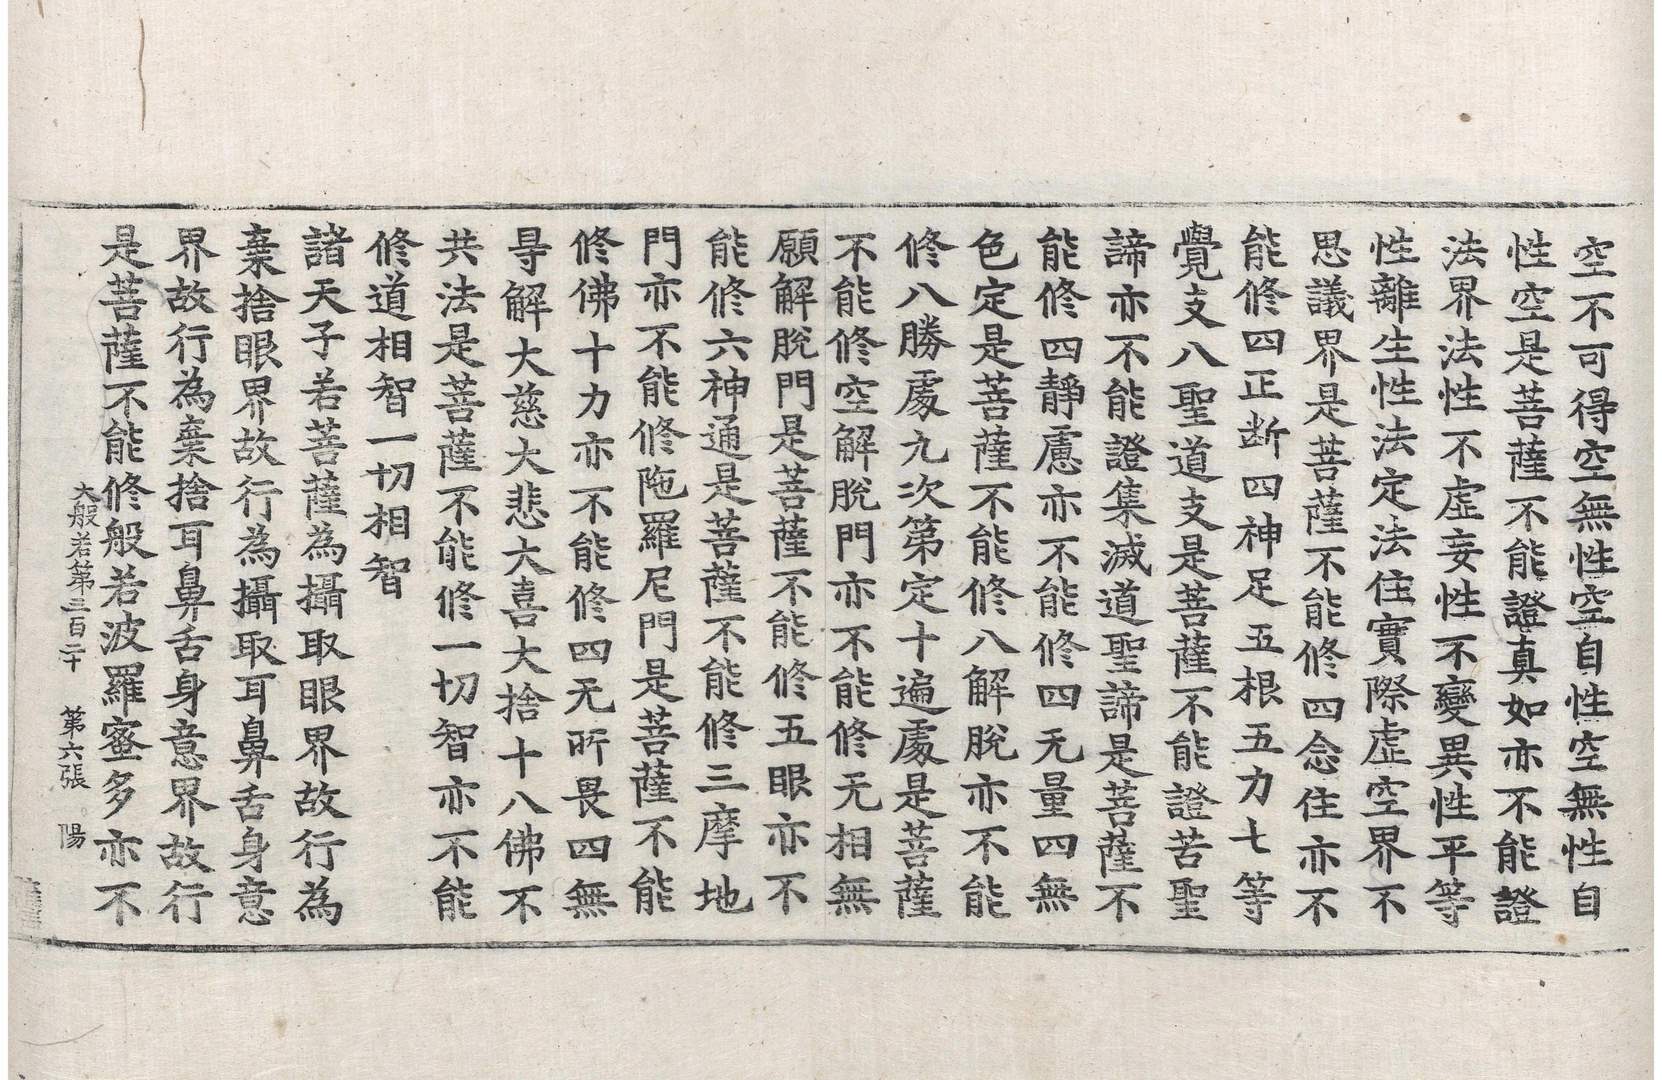 空不可得空無性空自性空無性自
性空是菩薩不能證真如亦不能證
法界法性不虛妄性不變異性平等
性離生性法定法住實際虛空界不
思議界是菩薩不能修四念住亦不
能修四正断四神足五根五力七等
覺支八聖道支是菩薩不能證苦聖
諦亦不能證集滅道聖諦是菩薩不
能修四靜慮亦不能修四无量四無
色定是菩薩不能修八解脫亦不能
修八勝處九次第定十遍處是菩薩
不能修空解脫門亦不能修无相無
願解脫門是菩薩不能修五眼亦不
能修六神通是菩薩不能修三摩地
門亦不能修陁羅尼門是菩薩不能
修佛十力亦不能修四无所畏四無
㝵解大慈大悲大喜大捨十八佛不
共法是菩薩不能修一切智亦不能
修道相智一切相智
諸天子若菩薩為攝取眼界故行為
棄捨眼界故行為攝取耳鼻舌身意
界故行為棄捨耳鼻舌身意界故行
是菩薩不能修般若波羅蜜多亦不
大般若第三百二十 第六張 陽